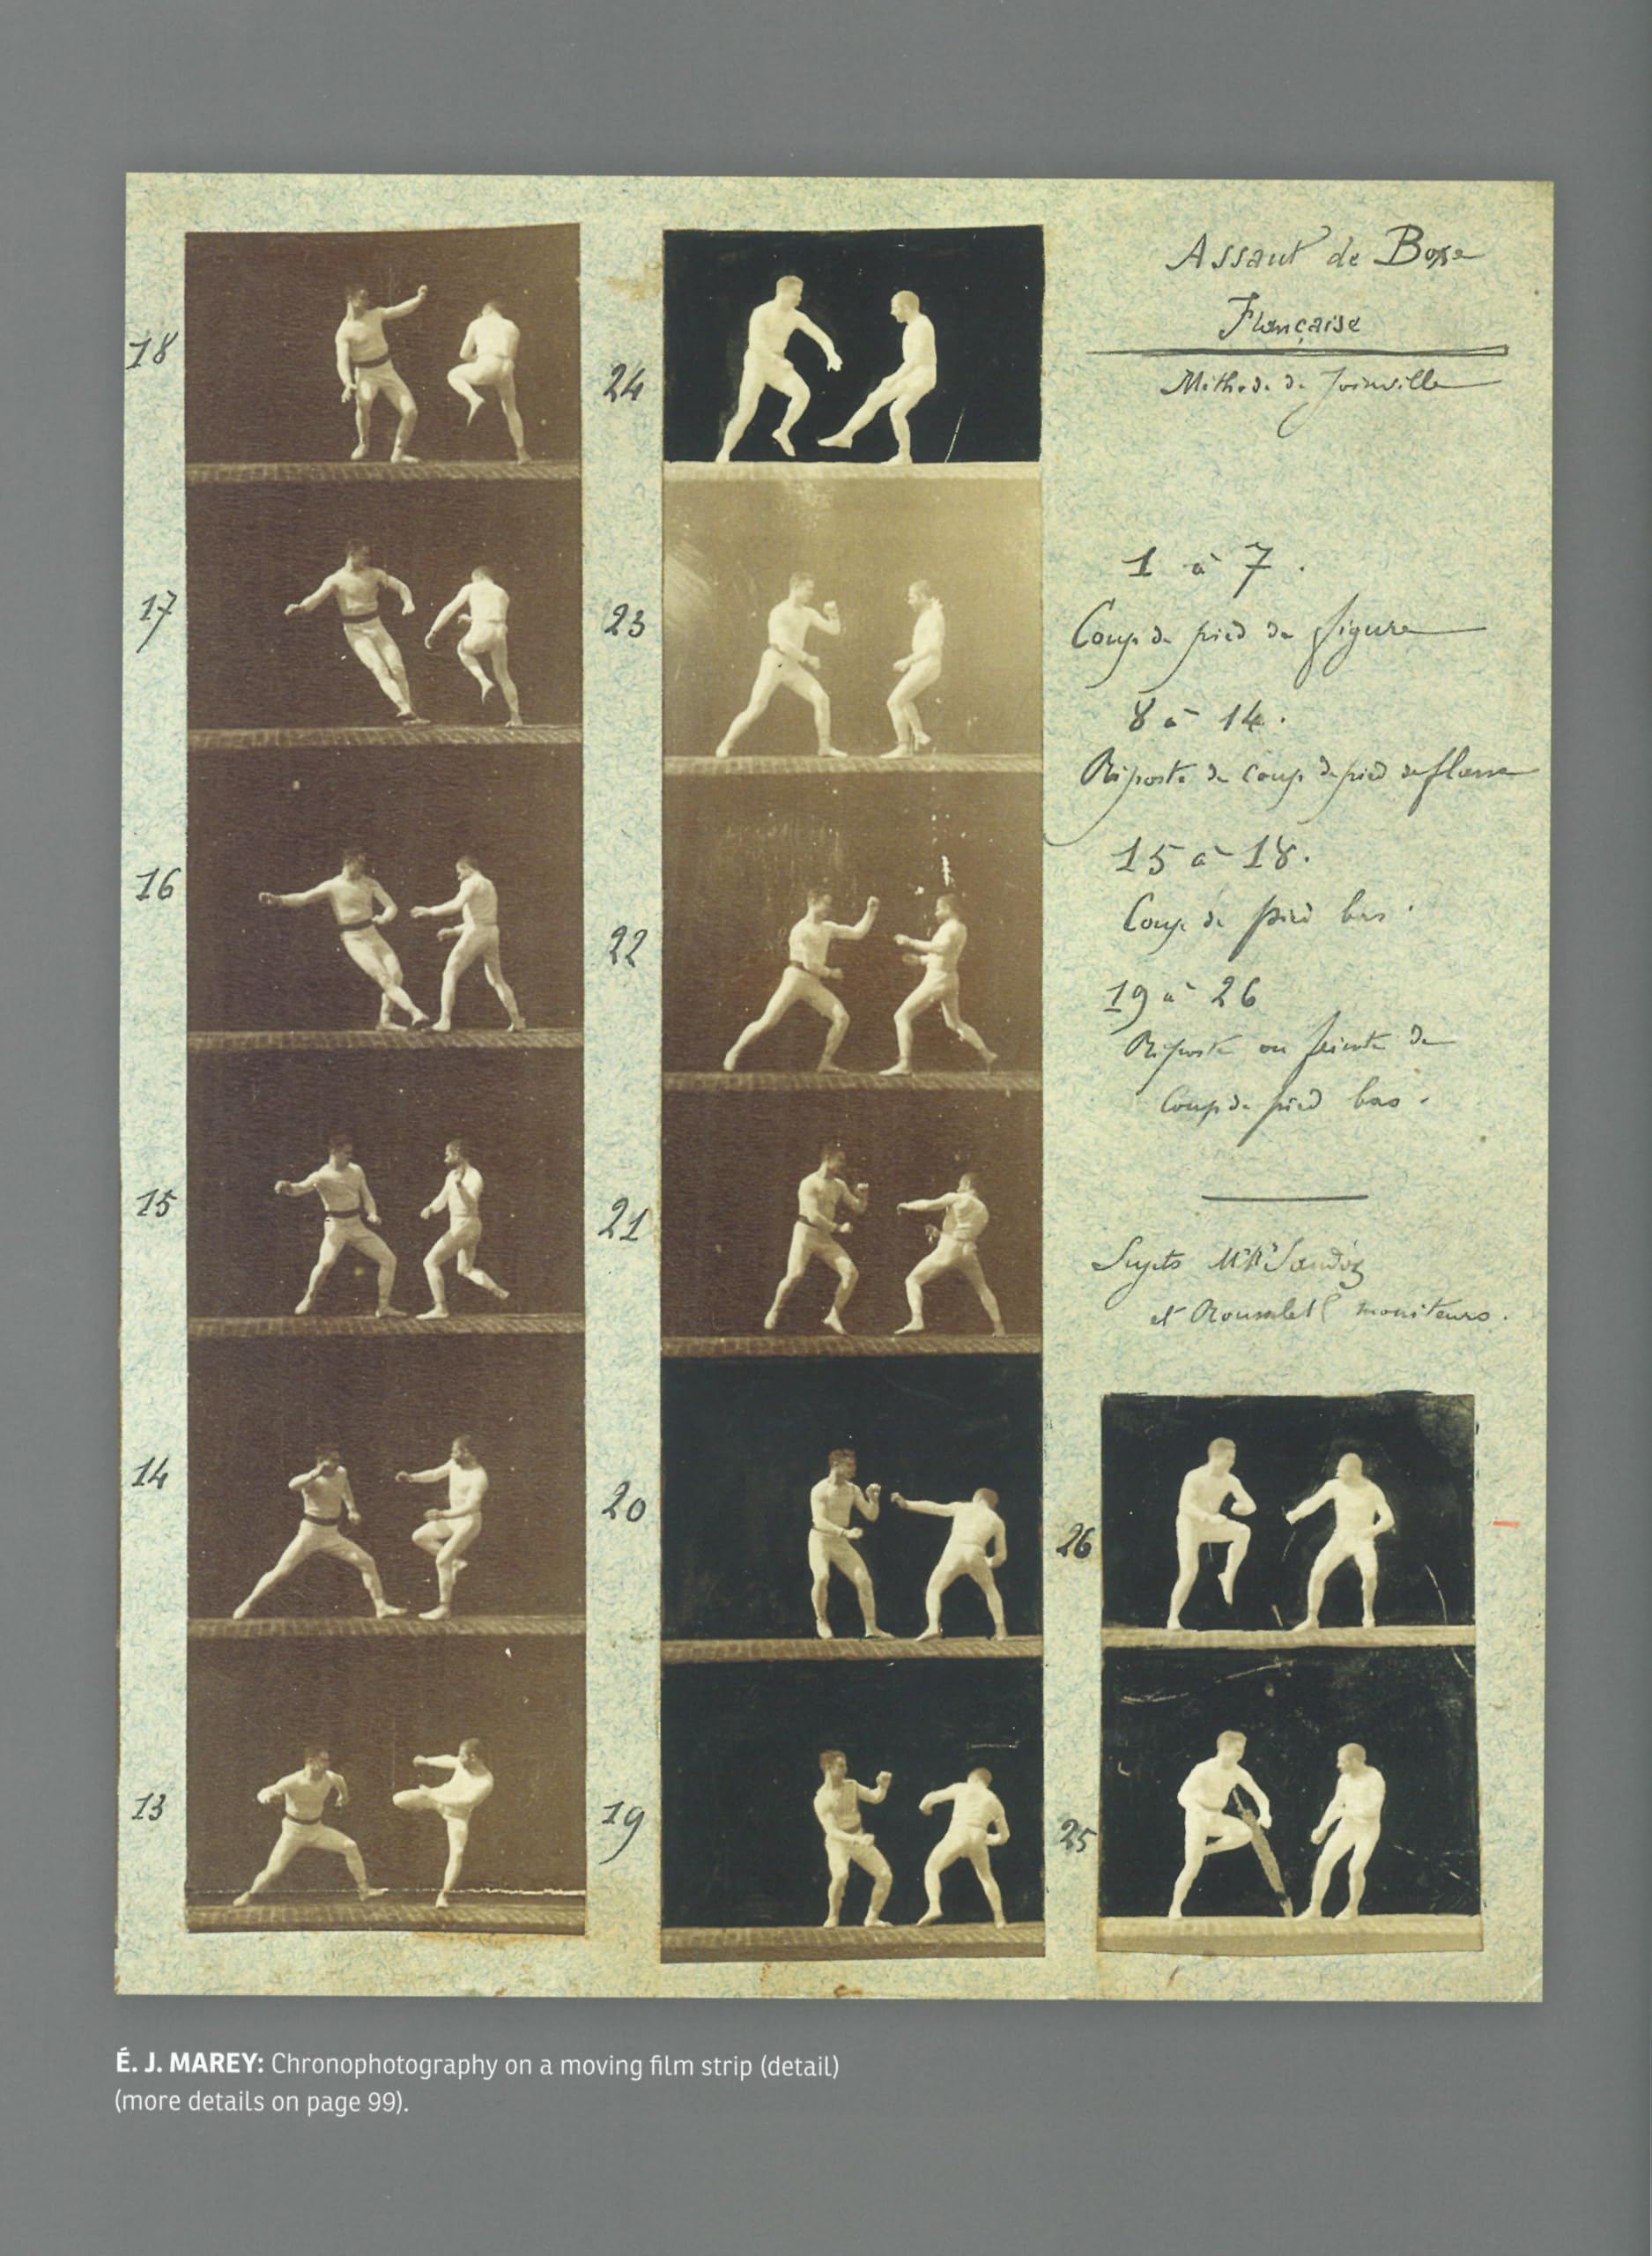 18
17
16
15
14
13
24
23
22
21
20
19
Assaut de Boxe
Française
Méthode de Joinville
1 à 7.
Coup de pied de figure
8 à 14.
Riposte de coup de pied de flanc
15 à 18.
Coup de pied bas.
19 à 26
Riposte ou feinte de
Coup de pied bas.
Sujets MM Sandoz
et moniteurs.
26
25
É. J. MAREY: Chronophotography on a moving film strip (detail)
(more details on page 99).